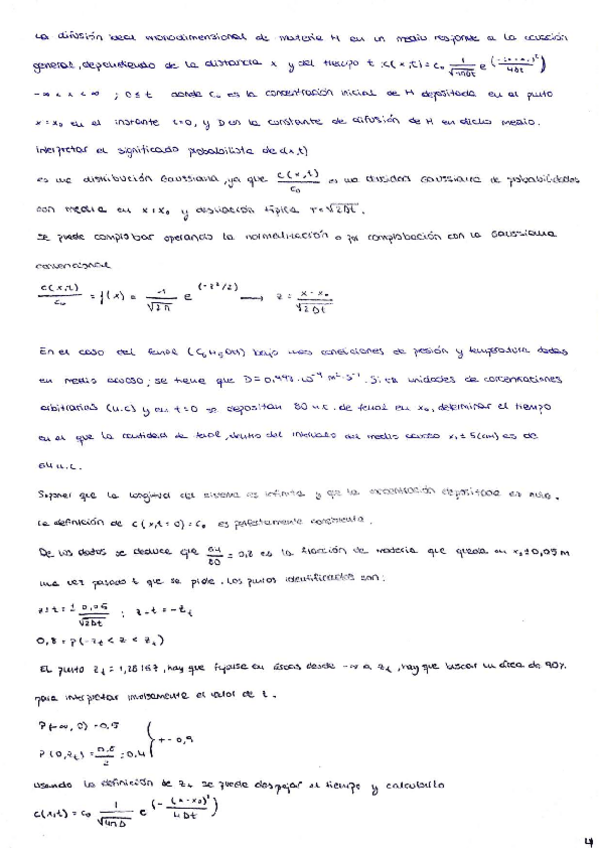 La difusión ideal monodimensional de materia M en un medio responde a la ecuación
general, dependiendo de la distancia x y del tiempo t: c(x,t) = c₀ 1/√(4πDt) e^(-(x-x₀)²/4Dt)
-∞ < x < ∞ ; 0 ≤ t donde c₀ es la concentración inicial de M depositada en el punto
x = x₀ en el instante t=0, y D es la constante de difusión de M en dicho medio.
Interpretar el significado probabilista de c(x,t)
es una distribución Gaussiana, ya que c(x,t)/c₀ es una Gaussiana de probabilidades
con media en x = x₀ y desviación típica σ = √2Dt.
Se puede comprobar operando la normalización o por comprobación con la Gaussiana
convencional
c(x,t)/c₀ = f(x) = 1/√2π e^(-z²/2) → z = x-x₀/√2Dt
En el caso del fenol (C₆H₅OH) bajo unas condiciones de presión y temperatura dadas
en medio acuoso, se tiene que D = m²·s⁻¹. Si en unidades de concentraciones
arbitrarias (u.c) y en t=0 se depositan 80 u.c. de fenol en x₀, determinar el tiempo
en el que la cantidad de fenol, dentro del intervalo del medio acuoso x₀ ± 5(cm) es de
64 u.c.
Suponer que la longitud del sistema es infinita y que la concentración depositada es nula.
La definición de c(x,t=0) = c₀ es perfectamente consistente.
De los datos se deduce que 64/80 = 0,8 es la fracción de materia que queda en x₀ ± 0,05 m
una vez pasado t que se pide. Los puntos identificados son:
z±t = ± 0,05/√2Dt ; z-t = -zt
0,8 = P(-zt < z < zt)
El punto zt = 1,28167, hay que fijarse en áreas desde -∞ a zt, hay que buscar un área de 90%
para interpretar inversamente el valor de t.
P(-∞, 0) = 0,5
P(0, zt) = 0,8/2 = 0,4 } + = 0,9
usando la definición de zt se puede despejar el tiempo y calcularlo
c(x,t) = c₀ 1/√4πD e^(-(x-x₀)²/4Dt)
4